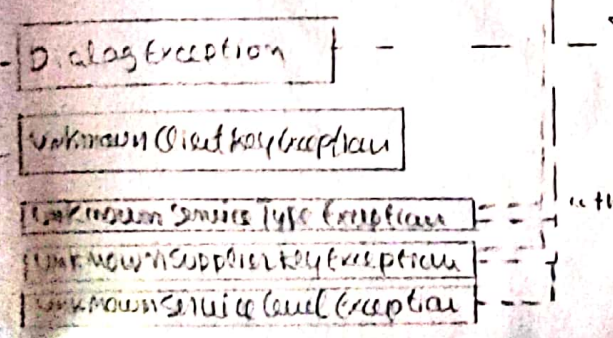 DialogException
UnknownClientKeyException
UnknownServiceTypeException
UnknownSupplierKeyException
UnknownServiceLevelException